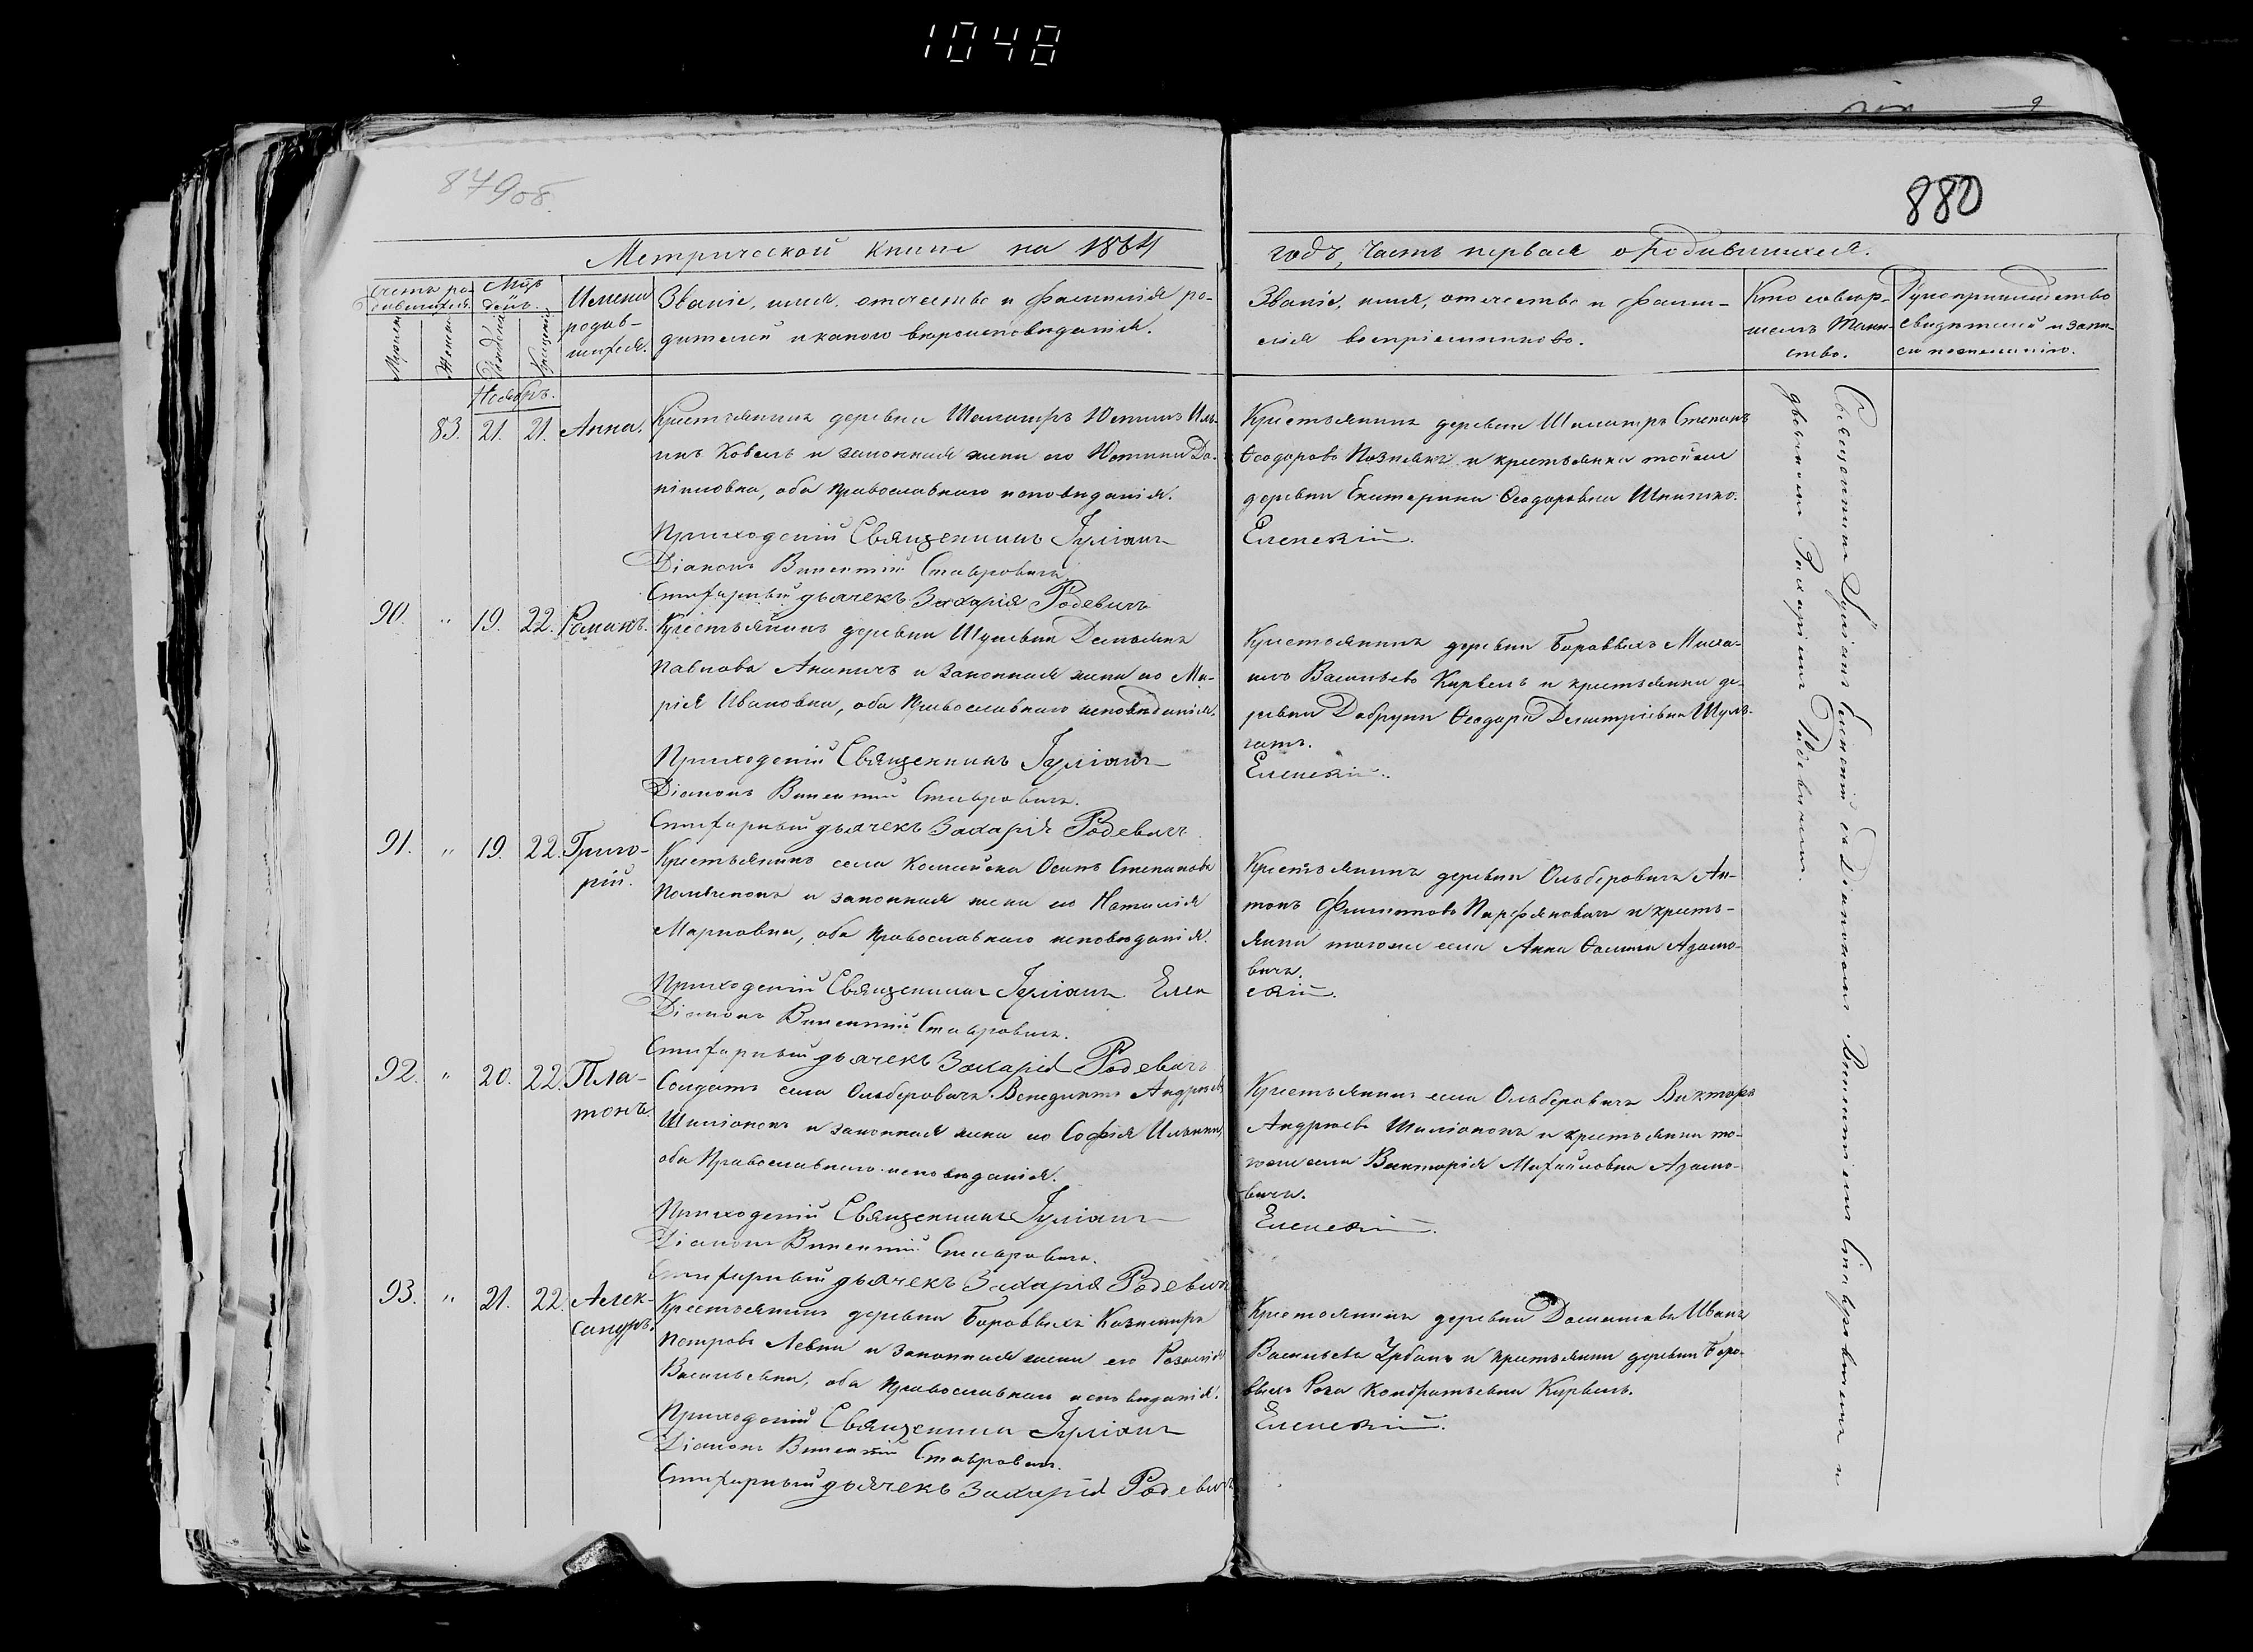 1048
879об.
880
Метрической книги на 1864
годъ, часть первая о родившихся.
Счетъ ро-
дившихся.
Мѣся
день.
Мужеск
Женск
Рожденія
Крещенія
Имена
родив-
шихся.
Званіе, имя, отчество и фамилія ро-
дителей и какого вѣроисповѣданія.
Званіе, имя, отчество и фами-
лія воспріемниковъ.
Кто совер-
шалъ таин-
ство.
Рукоприкладство
свидѣтелей о запи-
си по желанію.
Ноябрь.
83. 21. 21. Анна.
Крестьянинъ деревни Устинъ Иль-
инъ Ковель и законная жена его Устинія Да-
ніиловна, оба Православнаго исповѣданія.
Приходскій Священникъ Іуліанъ
Діаконъ Викентій Ставровичъ
Стихарный дьячекъ Захарія Родевичъ
Крестьянинъ деревни Степанъ
Ѳеодоровъ Познякъ и крестьянка тойже
деревни Екатерина Ѳеодоровна
Еленскій.
90. " 19. 22. Романъ.
Крестьянинъ деревни Демьянъ
Павловъ Ананичъ и законная жена его Ма-
рія Ивановна, оба Православнаго исповѣданія.
Приходскій Священникъ Іуліанъ
Діаконъ Викентій Ставровичъ.
Стихарный дьячекъ Захарія Родевичъ
Крестьянинъ деревни Боровыхъ Миха-
илъ Васильевъ Кирвель и крестьянка де-
ревни Добруни Ѳеодора Димитріевна Шуль-
гатъ.
Еленскій.
91. " 19. 22. Григо-
рій.
Крестьянинъ села Осипъ Степановъ
и законная жена его Наталія
Марковна, оба Православнаго исповѣданія.
Приходскій Священникъ Іуліанъ Елен
Діаконъ Викентій Ставровичъ.
Стихарный дьячекъ Захарія Родевичъ
Крестьянинъ деревни Ольберовичъ Ан-
тонъ Филиповъ Парфяновичъ и кресть-
янка тогоже села Анна Ѳомина Адамо-
вичъ.
скій.
92. " 20. 22. Пла-
тонъ.
Солдатъ села Ольберовичъ Венедиктъ Андреевъ
и законная жена его Софія Ильина,
оба Православнаго исповѣданія.
Приходскій Священникъ Іуліанъ
Діаконъ Викентій Ставровичъ.
Стихарный дьячекъ Захарія Родевичъ
Крестьянинъ села Ольберовичъ Викторъ
Андреевъ и крестьянка то-
гоже села Викторія Михайловна Адамо-
вичъ.
Еленскій.
93. " 21. 22. Алек-
сандръ.
Крестьянинъ деревни Боровыхъ Казимиръ
Петровъ Левша и законная жена его Розалія
Васильевна, оба Православнаго исповѣданія.
Приходскій Священникъ Іуліанъ
Діаконъ Викентій Ставровичъ.
Стихарный дьячекъ Захарія Родевичъ
Крестьянинъ деревни Иванъ
Васильевъ Урбанъ и крестьянка деревни Боро-
выхъ Роза Кондратьевна Кирвель.
Еленскій.
Священникъ Іуліанъ Еленскій съ Діакономъ Викентіемъ Ставровичемъ и
дьячкомъ Захаріемъ Родевичемъ.